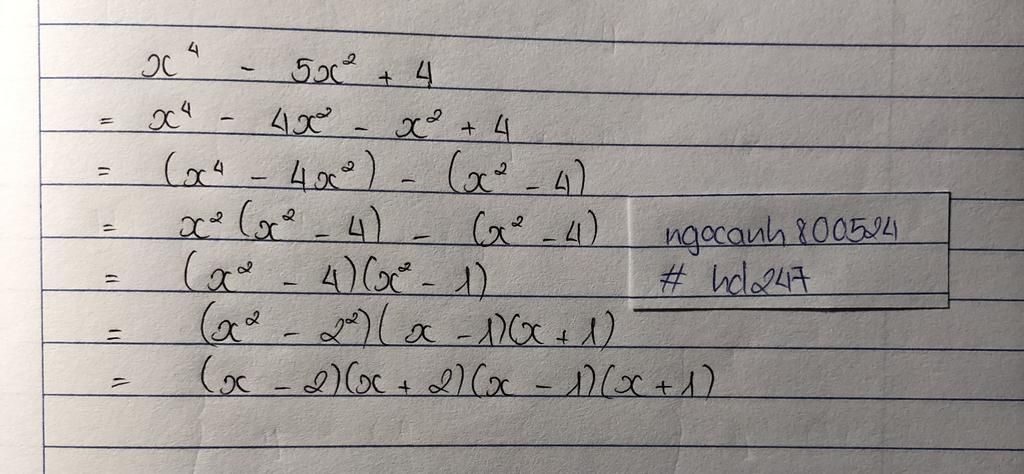 x⁴ - 5x² + 4
= x⁴ - 4x² - x² + 4
= (x⁴ - 4x²) - (x² - 4)
= x² (x² - 4) - (x² - 4)
= (x² - 4)(x² - 1)
= (x² - 2²)(x - 1)(x + 1)
= (x - 2)(x + 2)(x - 1)(x + 1)
ngocanh800524
# hd247